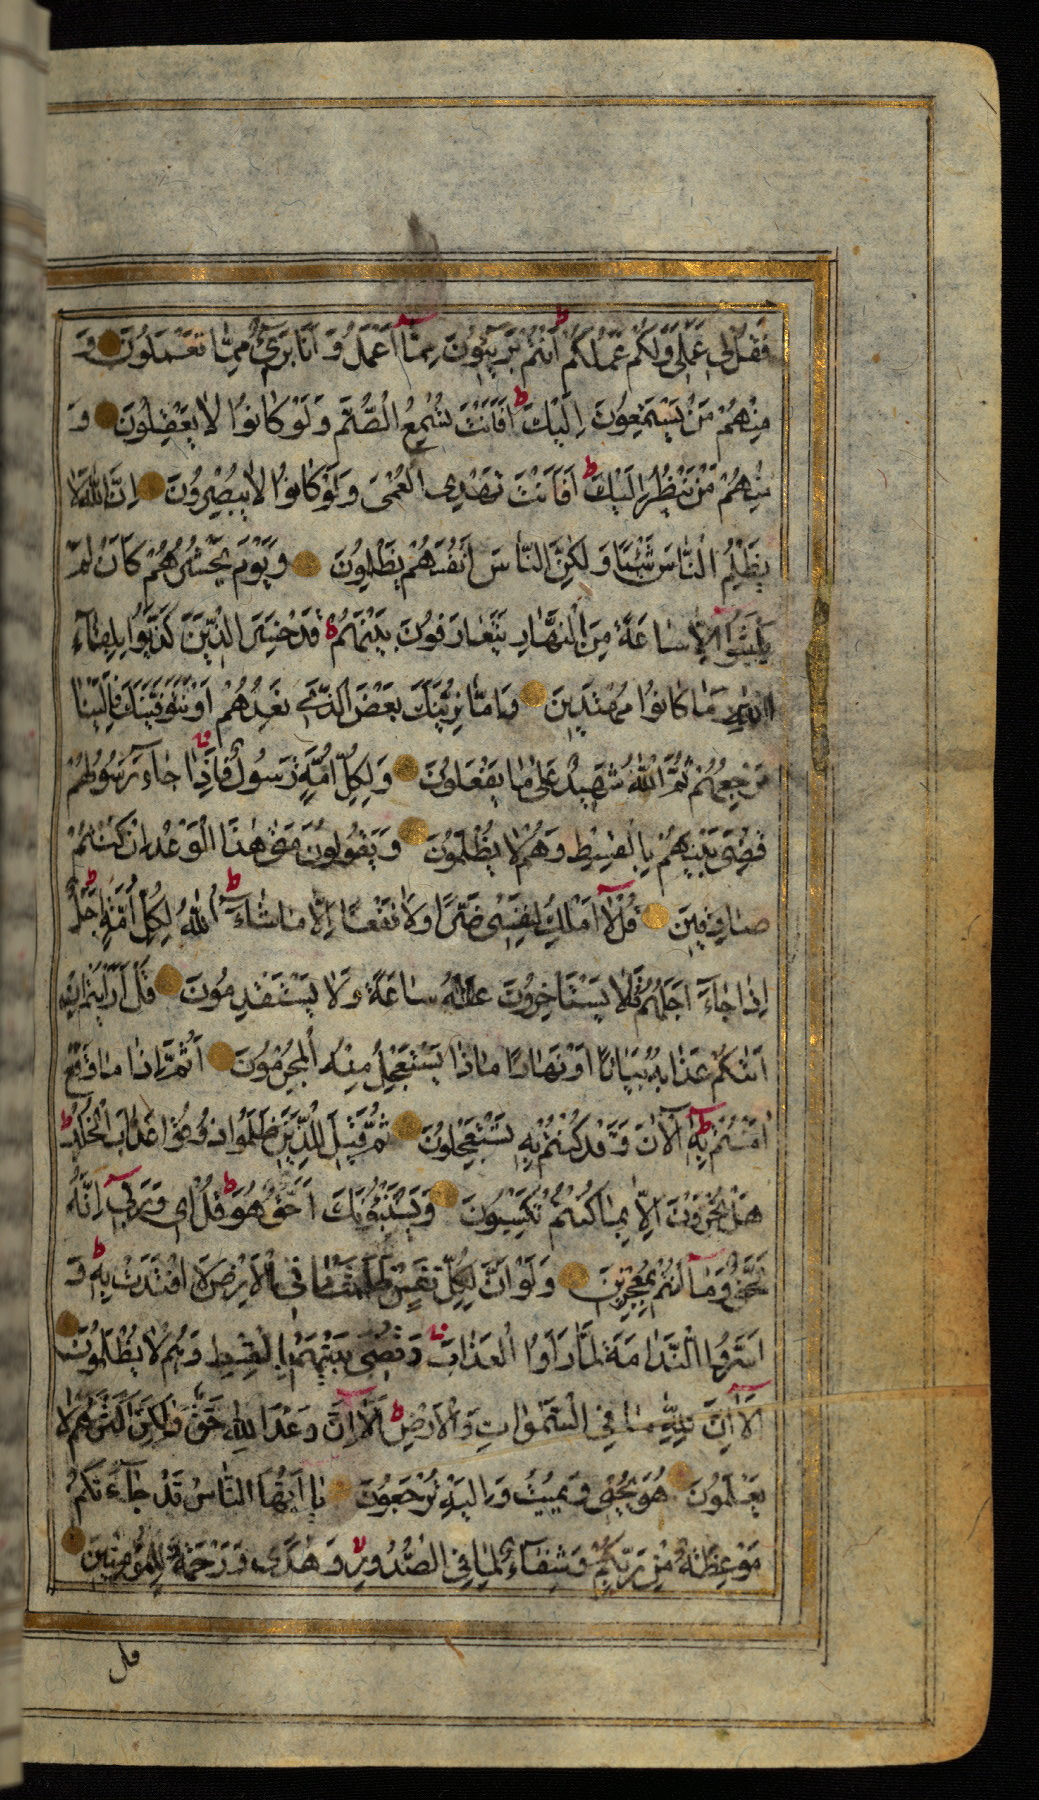 فَقُلْ لِي عَمَلِي وَلَكُمْ عَمَلُكُمْ ط أَنْتُمْ بَرِيئُونَ مِمَّا أَعْمَلُ وَأَنَا بَرِيءٌ مِمَّا تَعْمَلُونَ وَ
مِنْهُمْ مَنْ يَسْتَمِعُونَ إِلَيْكَ ط أَفَأَنْتَ تُسْمِعُ الصُّمَّ وَلَوْ كَانُوا لَا يَعْقِلُونَ وَ
مِنْهُمْ مَنْ يَنْظُرُ إِلَيْكَ ط أَفَأَنْتَ تَهْدِي الْعُمْيَ وَلَوْ كَانُوا لَا يُبْصِرُونَ إِنَّ اللَّهَ لَا
يَظْلِمُ النَّاسَ شَيْئًا وَلَكِنَّ النَّاسَ أَنْفُسَهُمْ يَظْلِمُونَ وَيَوْمَ يَحْشُرُهُمْ كَأَنْ لَمْ
يَلْبَثُوا إِلَّا سَاعَةً مِنَ النَّهَارِ يَتَعَارَفُونَ بَيْنَهُمْ ط قَدْ خَسِرَ الَّذِينَ كَذَّبُوا بِلِقَاءِ
اللَّهِ وَمَا كَانُوا مُهْتَدِينَ وَإِمَّا نُرِيَنَّكَ بَعْضَ الَّذِي نَعِدُهُمْ أَوْ نَتَوَفَّيَنَّكَ فَإِلَيْنَا
مَرْجِعُهُمْ ثُمَّ اللَّهُ شَهِيدٌ عَلَى مَا يَفْعَلُونَ وَلِكُلِّ أُمَّةٍ رَسُولٌ فَإِذَا جَاءَ رَسُولُهُمْ
قُضِيَ بَيْنَهُمْ بِالْقِسْطِ وَهُمْ لَا يُظْلَمُونَ وَيَقُولُونَ مَتَى هَذَا الْوَعْدُ إِنْ كُنْتُمْ
صَادِقِينَ قُلْ لَا أَمْلِكُ لِنَفْسِي ضَرًّا وَلَا نَفْعًا إِلَّا مَا شَاءَ اللَّهُ ط لِكُلِّ أُمَّةٍ أَجَلٌ ط
إِذَا جَاءَ أَجَلُهُمْ فَلَا يَسْتَأْخِرُونَ سَاعَةً وَلَا يَسْتَقْدِمُونَ قُلْ أَرَأَيْتُمْ إِنْ
أَتَاكُمْ عَذَابُهُ بَيَاتًا أَوْ نَهَارًا مَاذَا يَسْتَعْجِلُ مِنْهُ الْمُجْرِمُونَ أَثُمَّ إِذَا مَا وَقَعَ
آمَنْتُمْ بِهِ ط آلْآنَ وَقَدْ كُنْتُمْ بِهِ تَسْتَعْجِلُونَ ثُمَّ قِيلَ لِلَّذِينَ ظَلَمُوا ذُوقُوا عَذَابَ الْخُلْدِ ط
هَلْ تُجْزَوْنَ إِلَّا بِمَا كُنْتُمْ تَكْسِبُونَ وَيَسْتَنْبِئُونَكَ أَحَقٌّ هُوَ ط قُلْ إِي وَرَبِّي إِنَّهُ
لَحَقٌّ وَمَا أَنْتُمْ بِمُعْجِزِينَ وَلَوْ أَنَّ لِكُلِّ نَفْسٍ ظَلَمَتْ مَا فِي الْأَرْضِ لَافْتَدَتْ بِهِ ط وَ
أَسَرُّوا النَّدَامَةَ لَمَّا رَأَوُا الْعَذَابَ وَقُضِيَ بَيْنَهُمْ بِالْقِسْطِ وَهُمْ لَا يُظْلَمُونَ
أَلَا إِنَّ لِلَّهِ مَا فِي السَّمَوَاتِ وَالْأَرْضِ ط أَلَا إِنَّ وَعْدَ اللَّهِ حَقٌّ وَلَكِنَّ أَكْثَرَهُمْ لَا
يَعْلَمُونَ هُوَ يُحْيِي وَيُمِيتُ وَإِلَيْهِ تُرْجَعُونَ يَا أَيُّهَا النَّاسُ قَدْ جَاءَتْكُمْ
مَوْعِظَةٌ مِنْ رَبِّكُمْ وَشِفَاءٌ لِمَا فِي الصُّدُورِ وَهُدًى وَرَحْمَةٌ لِلْمُؤْمِنِينَ
قل